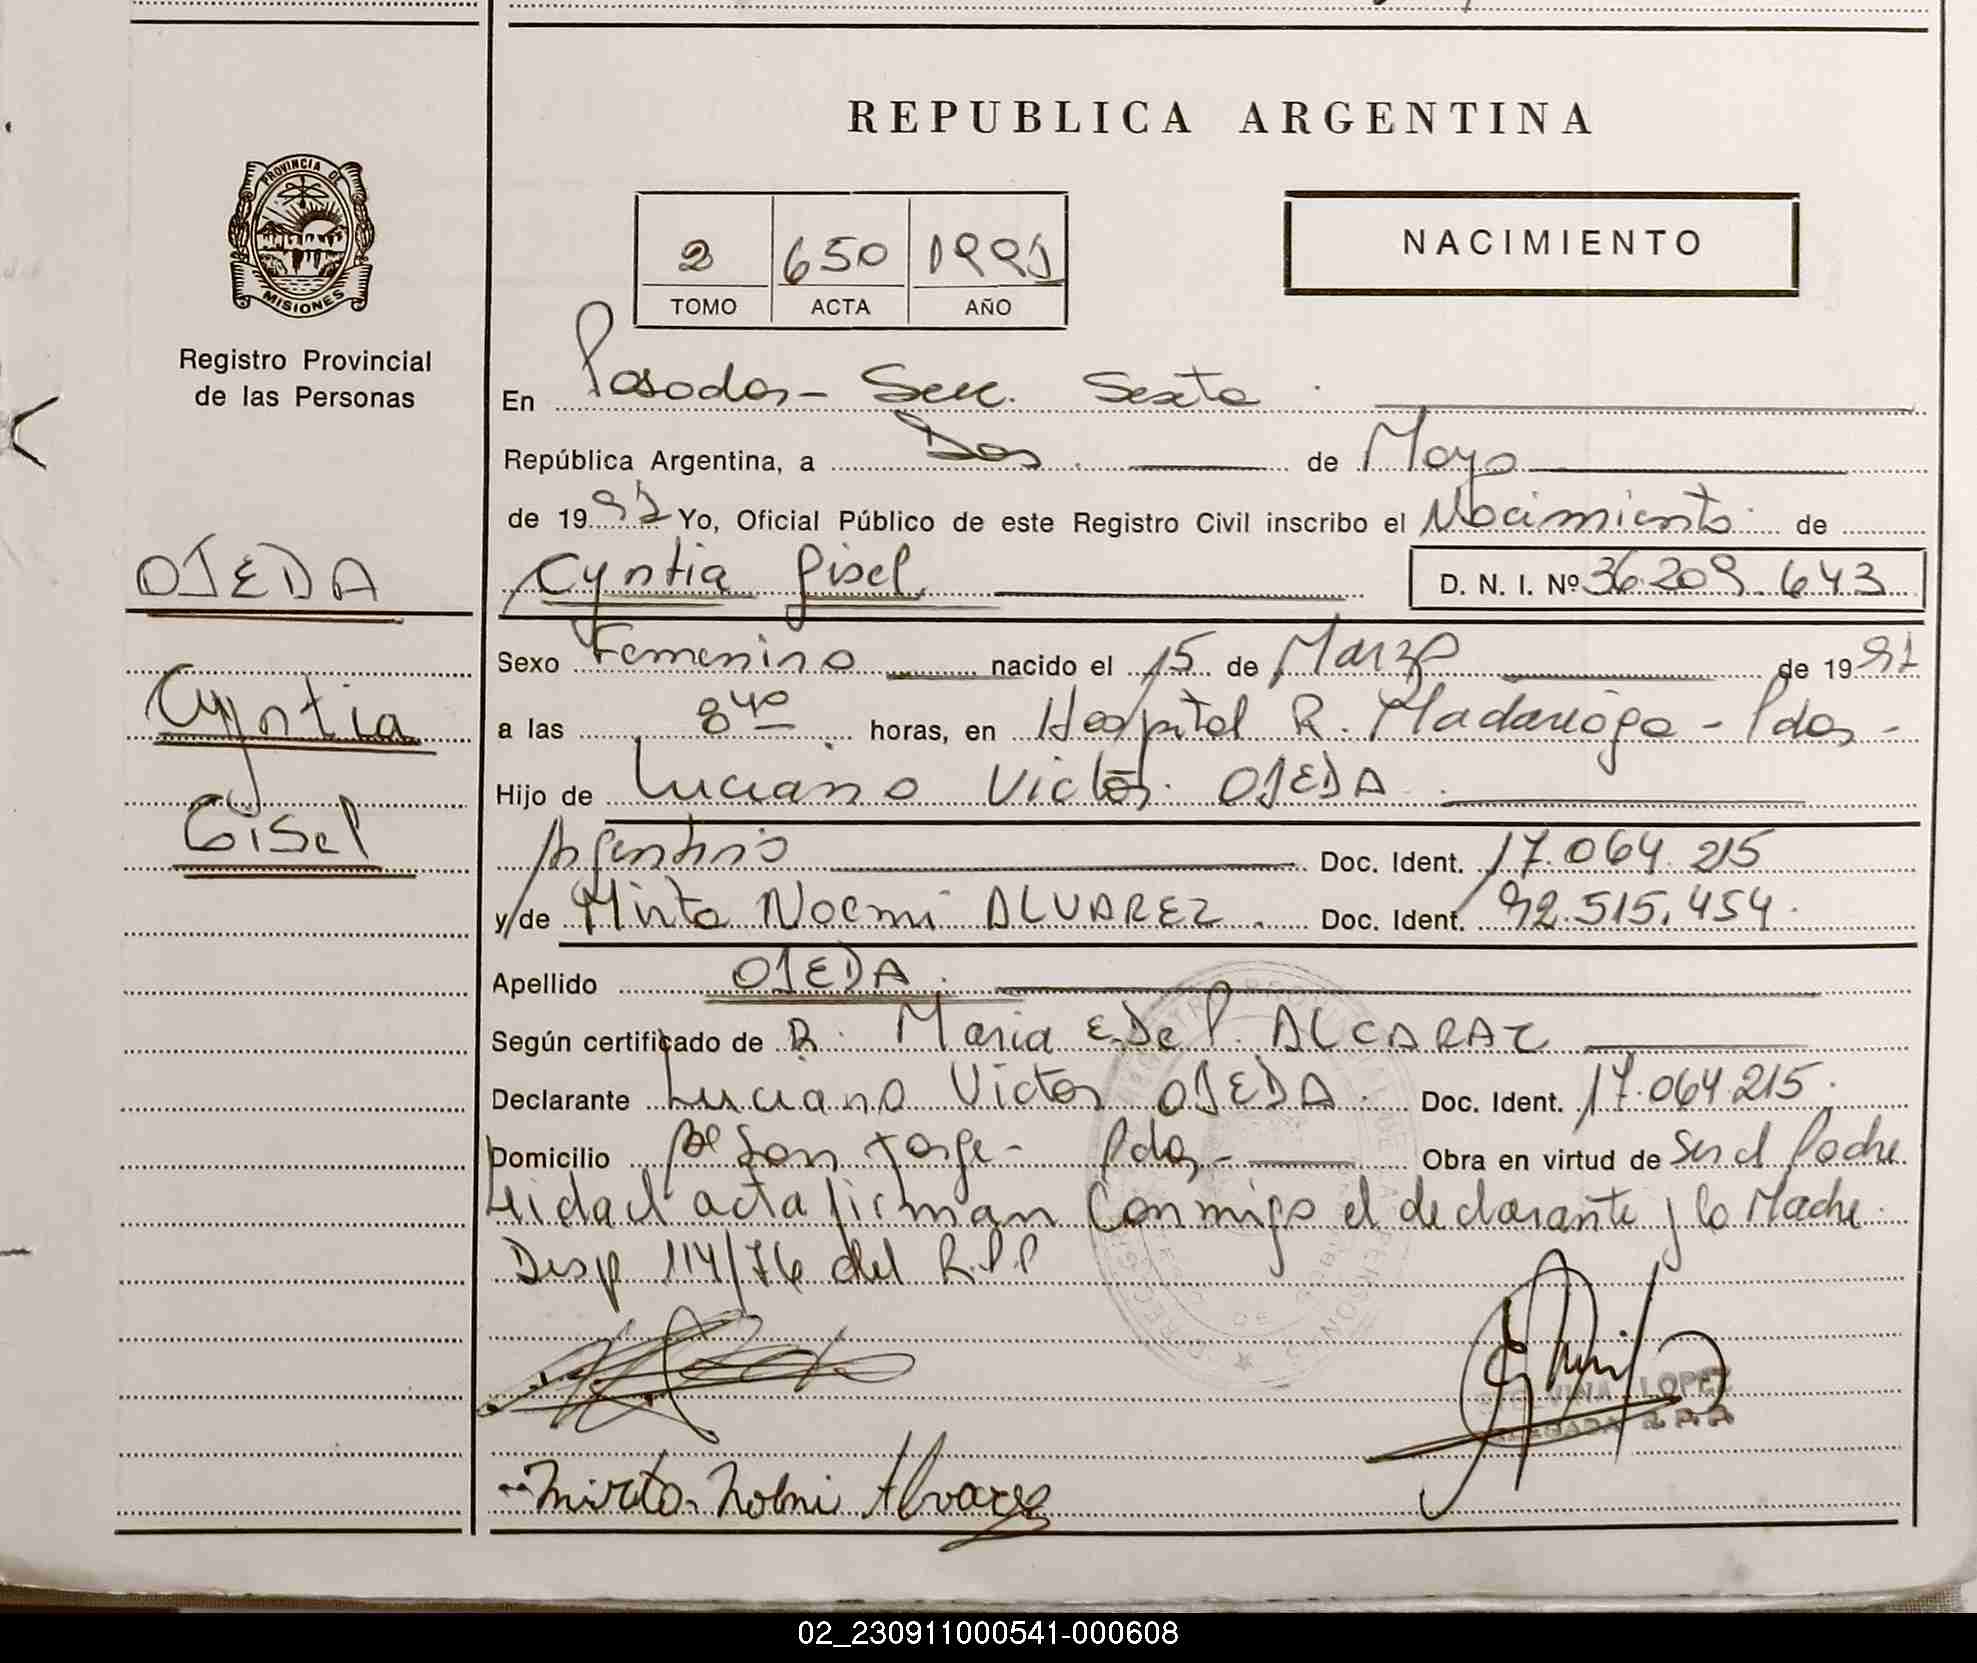 REPUBLICA ARGENTINA
PROVINCIA DE
MISIONES
Registro Provincial
de las Personas
2 650 1991
TOMO ACTA AÑO
NACIMIENTO
En Posadas - Secc. Sexta
República Argentina, a Dos de Mayo
de 1991 Yo, Oficial Público de este Registro Civil inscribo el Nacimiento de
OJEDA
Cyntia Gisel D. N. I. Nº 36.209.643
Sexo Femenino nacido el 15 de Marzo de 1991
Cyntia
a las 8 40 horas, en Hospital R. Madariaga - Pdas -
Hijo de Luciano Victor OJEDA
Gisel
Argentino Doc. Ident. 17.064.215
y/de Mirta Noemi ALVAREZ Doc. Ident. 92.515.454
Apellido OJEDA
Según certificado de María E. Del P. ALCARAZ
Declarante Luciano Victor OJEDA Doc. Ident. 17.064.215
Domicilio San Jorge - Pdas - Obra en virtud de Ser el Padre
Leida el acta firman Conmigo el declarante y la Madre
Disp 114/76 del R.P.P
LOPEZ
Mirta Noemi Alvarez
02_230911000541-000608